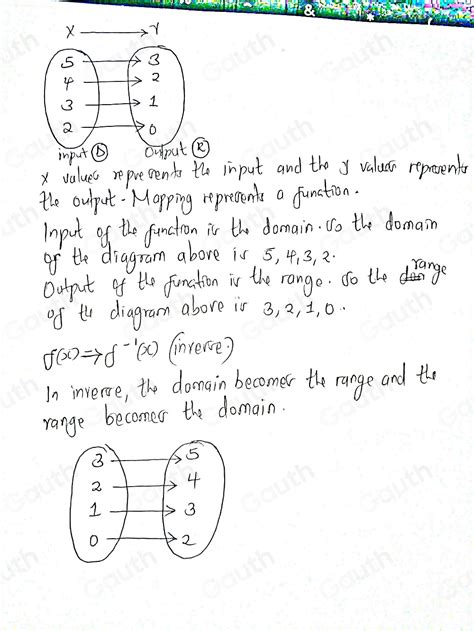 X → Y
5 → 3
4 → 2
3 → 1
2 → 0
input (D) Output (R)
x values represents the input and the y values represents
the output. Mapping represents a function.
Input of the function is the domain. So the domain
of the diagram above is 5, 4, 3, 2.
Output of the function is the range. So the range
of the diagram above is 3, 2, 1, 0.
f(x) ⇒ f⁻¹(x) (inverse)
In inverse, the domain becomes the range and the
range becomes the domain.
3 → 5
2 → 4
1 → 3
0 → 2